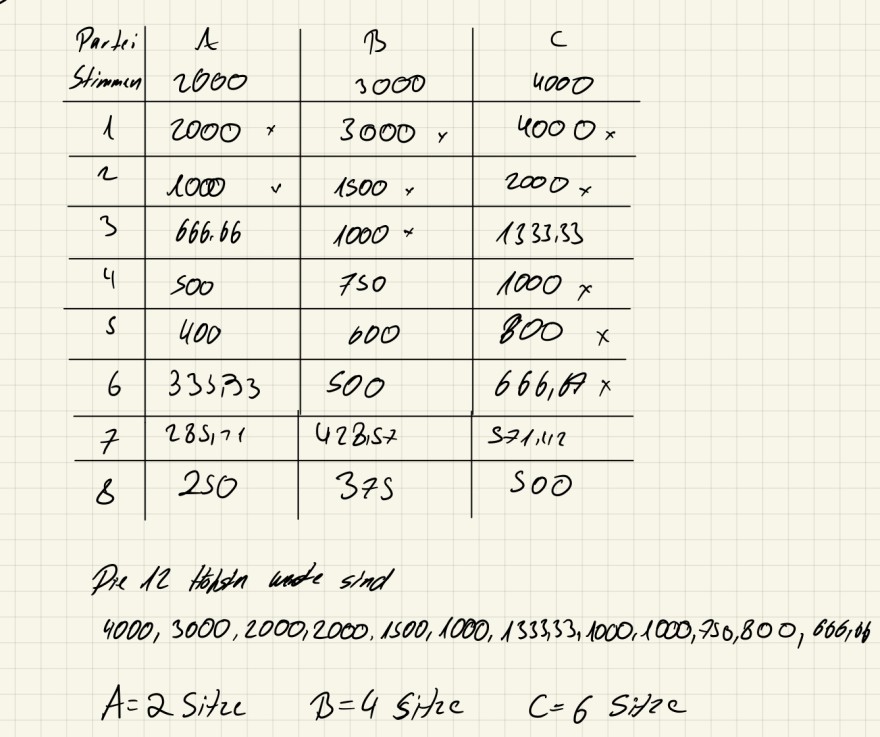 Partei A B C
Stimmen 2000 3000 4000
1 2000 x 3000 x 4000 x
2 1000 v 1500 x 2000 x
3 666.66 1000 x 1333,33
4 500 750 1000 x
5 400 600 800 x
6 333,33 500 666,67 x
7 285,71 428,57 571,42
8 250 375 500
Die 12 sind
4000, 3000, 2000, 2000, 1500, 1000, 1333,33, 1000, 1000, 750, 800, 666,66
A = 2 Sitze B = 4 Sitze C = 6 Sitze